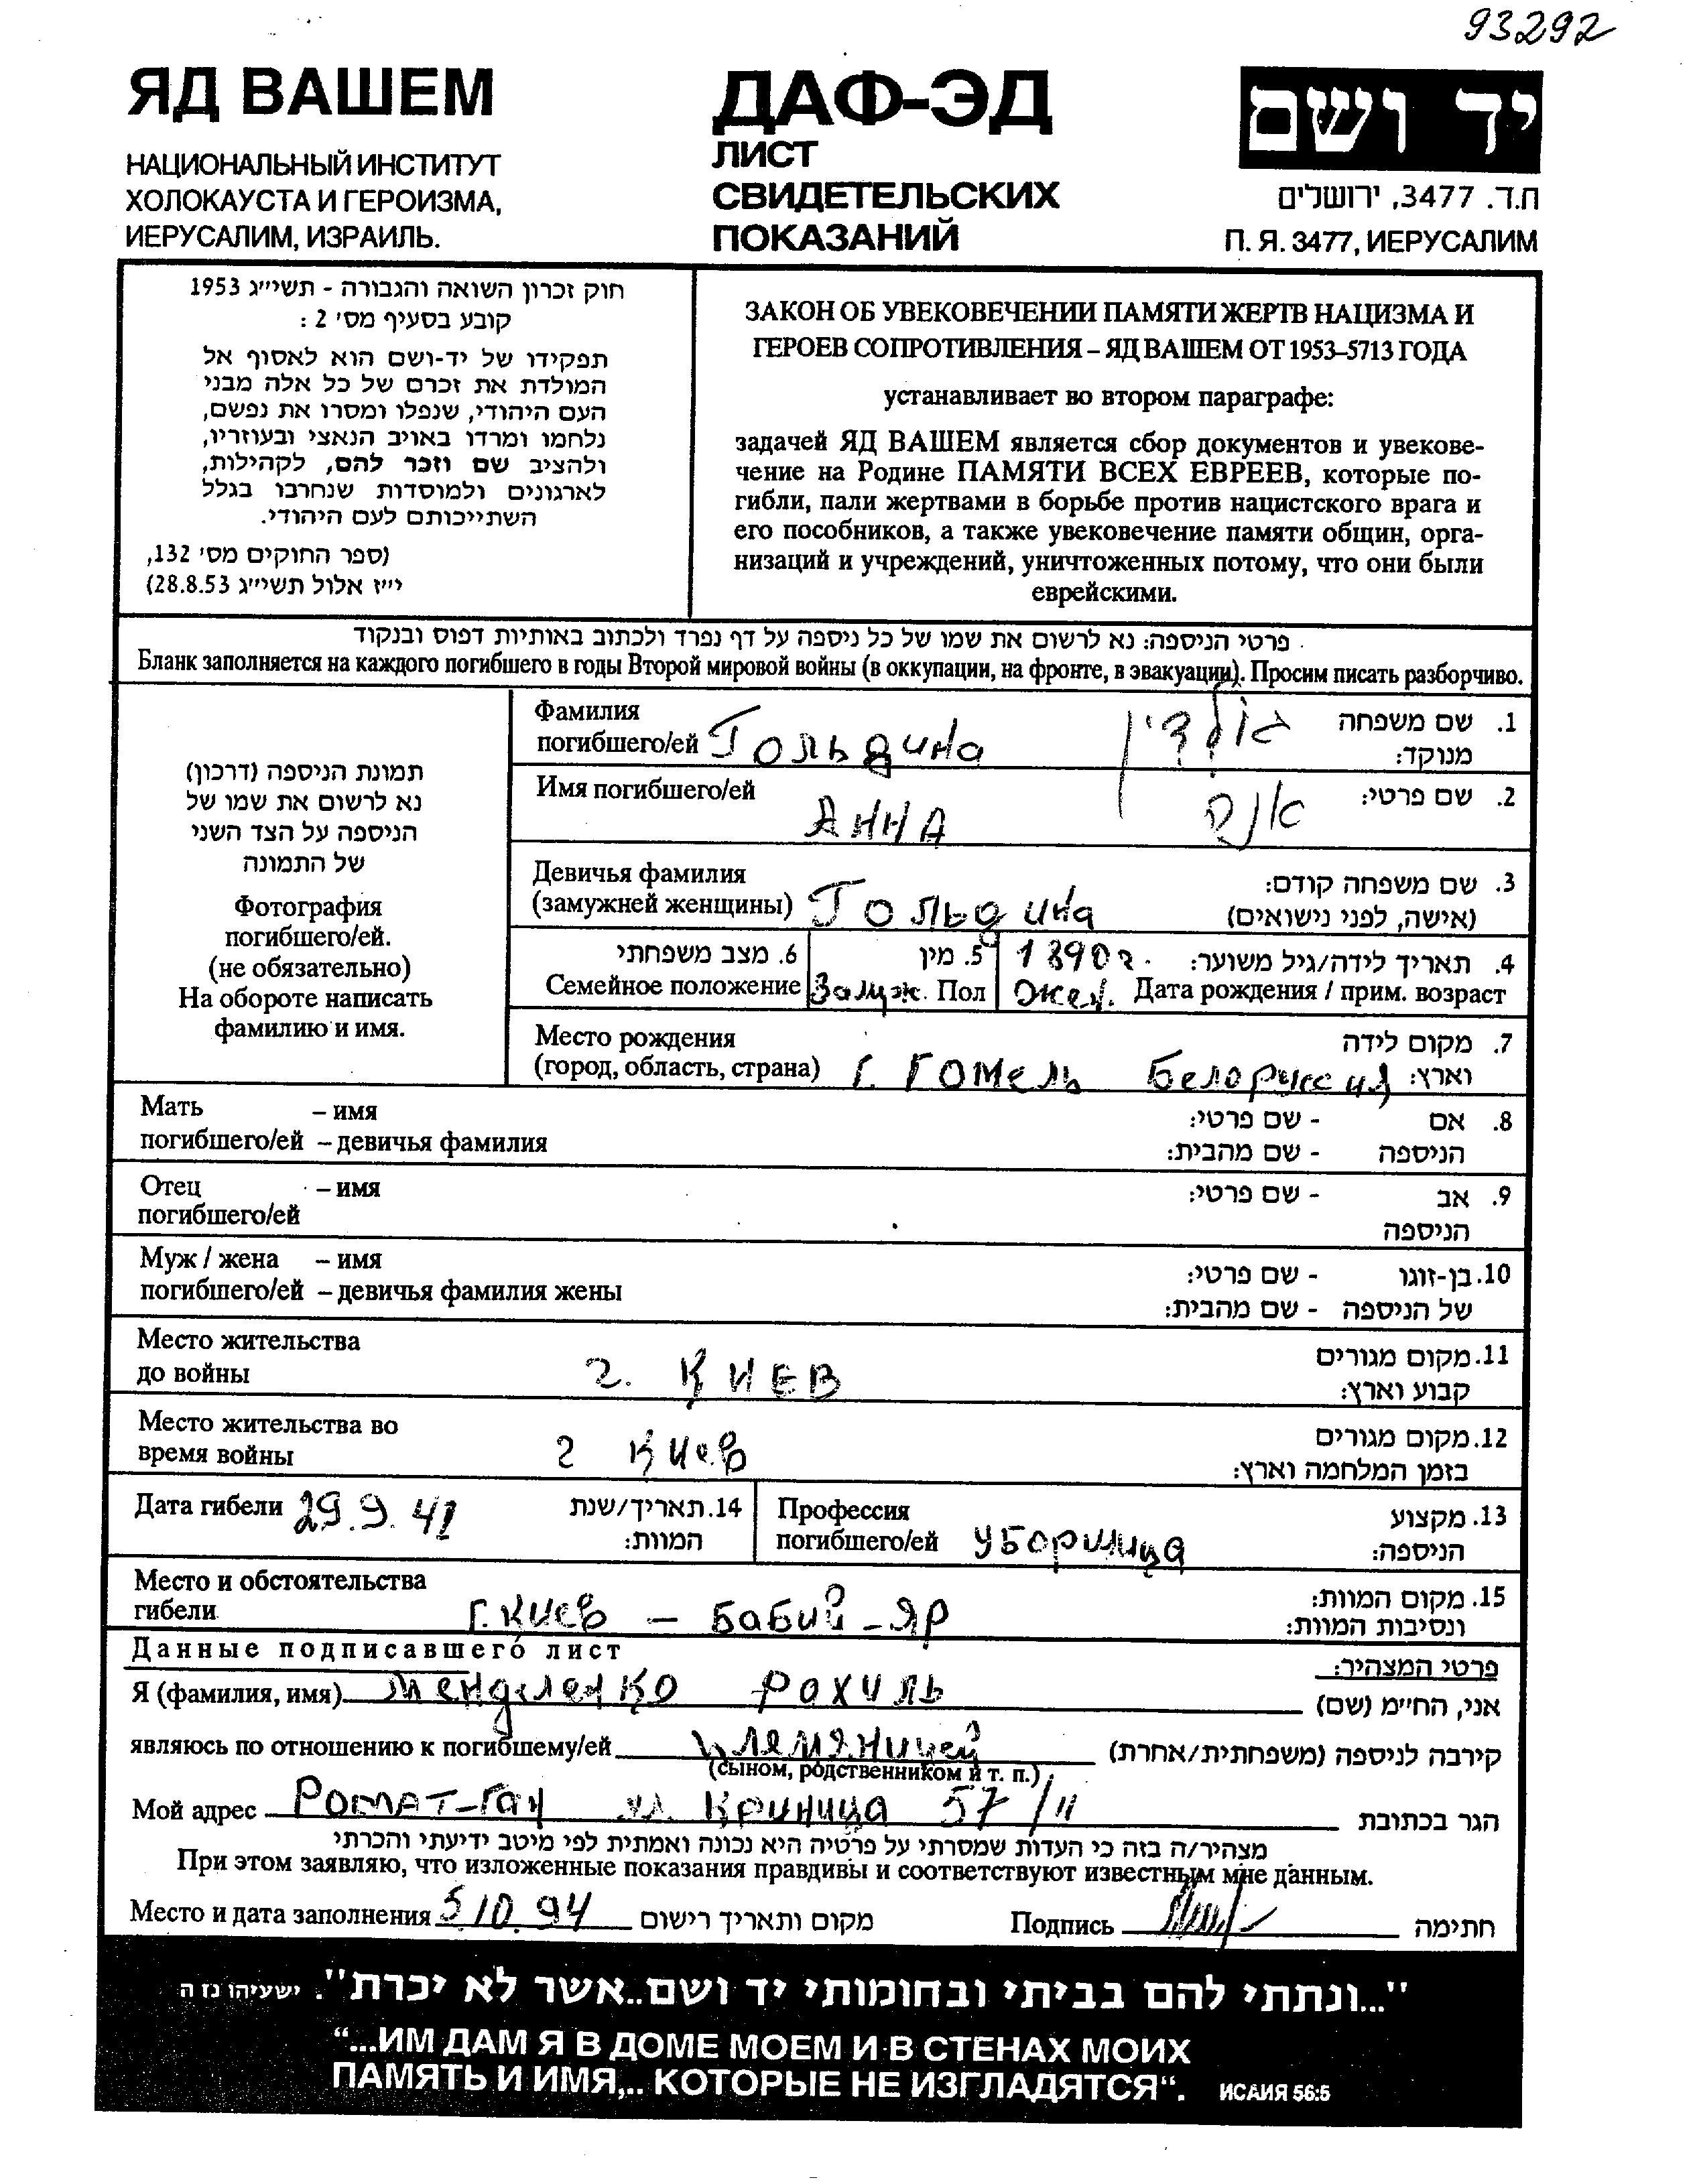 93292
ЯД ВАШЕМ
НАЦИОНАЛЬНЫЙ ИНСТИТУТ
ХОЛОКАУСТА И ГЕРОИЗМА,
ИЕРУСАЛИМ, ИЗРАИЛЬ.
ДАФ-ЭД
ЛИСТ
СВИДЕТЕЛЬСКИХ
ПОКАЗАНИЙ
יד ושם
ת.ד. 3477, ירושלים
П. Я. 3477, ИЕРУСАЛИМ
חוק זכרון השואה והגבורה - תשי״ג 1953
קובע בסעיף מס׳ 2 :
תפקידו של יד-ושם הוא לאסוף אל
המולדת את זכרם של כל אלה מבני
העם היהודי, שנפלו ומסרו את נפשם,
נלחמו ומרדו באויב הנאצי ובעוזריו,
ולהציב שם וזכר להם, לקהילות,
לארגונים ולמוסדות שנחרבו בגלל
השתייכותם לעם היהודי.
(ספר החוקים מס׳ 132,
י״ז אלול תשי״ג 28.8.53)
ЗАКОН ОБ УВЕКОВЕЧЕНИИ ПАМЯТИ ЖЕРТВ НАЦИЗМА И
ГЕРОЕВ СОПРОТИВЛЕНИЯ – ЯД ВАШЕМ ОТ 1953–5713 ГОДА
устанавливает во втором параграфе:
задачей ЯД ВАШЕМ является сбор документов и увекове-
чение на Родине ПАМЯТИ ВСЕХ ЕВРЕЕВ, которые по-
гибли, пали жертвами в борьбе против нацистского врага и
его пособников, а также увековечение памяти общин, орга-
низаций и учреждений, уничтоженных потому, что они были
еврейскими.
פרטי הניספה: נא לרשום את שמו של כל ניספה על דף נפרד ולכתוב באותיות דפוס ובנקוד
Бланк заполняется на каждого погибшего в годы Второй мировой войны (в оккупации, на фронте, в эвакуации). Просим писать разборчиво.
תמונת הניספה (דרכון)
נא לרשום את שמו של
הניספה על הצד השני
של התמונה
Фотография
погибшего/ей.
(не обязательно)
На обороте написать
фамилию и имя.
Фамилия
погибшего/ей Гольдина גולדין
1. שם משפחה
מנוקד:
Имя погибшего/ей АННА אנה 2. שם פרטי:
Девичья фамилия
(замужней женщины) Гольдина
3. שם משפחה קודם:
(אישה, לפני נישואים)
6. מצב משפחתי
Семейное положение Замуж.
5. מין
Пол Жен.
4. תאריך לידה/גיל משוער: 1890г.
Дата рождения / прим. возраст
Место рождения
(город, область, страна) г. ГОМель Белоруссия
7. מקום לידה
וארץ:
Мать – имя
погибшего/ей – девичья фамилия
8. אם - שם פרטי:
הניספה - שם מהבית:
Отец – имя
погибшего/ей
9. אב - שם פרטי:
הניספה
Муж / жена – имя
погибшего/ей – девичья фамилия жены
10. בן-זוגו - שם פרטי:
של הניספה - שם מהבית:
Место жительства
до войны г. КИЕВ
11. מקום מגורים
קבוע וארץ:
Место жительства во
время войны г Киев
12. מקום מגורים
בזמן המלחמה וארץ:
Дата гибели 29.9.41
14. תאריך/שנת
המוות:
Профессия
погибшего/ей уборщица
13. מקצוע
הניספה:
Место и обстоятельства
гибели г. Киев – Бабий-Яр
15. מקום המוות:
ונסיבות המוות:
Данные подписавшего лист
פרטי המצהיר:
Я (фамилия, имя) Менделенко Рохиль אני, הח״מ (שם)
являюсь по отношению к погибшему/ей племяницей קירבה לניספה (משפחתית/אחרת)
(сыном, родственником и т. п.)
Мой адрес Ромат-Ган ул. Криница 57/11 הגר בכתובת
מצהיר/ה בזה כי העדות שמסרתי על פרטיה היא נכונה ואמתית לפי מיטב ידיעתי והכרתי
При этом заявляю, что изложенные показания правдивы и соответствуют известным мне данным.
Место и дата заполнения 5/10.94 מקום ותאריך רישום Подпись חתימה
"...ונתתי להם בביתי ובחומותי יד ושם..אשר לא יכרת". ישעיהו נו ה
“...ИМ ДАМ Я В ДОМЕ МОЕМ И В СТЕНАХ МОИХ
ПАМЯТЬ И ИМЯ,.. КОТОРЫЕ НЕ ИЗГЛАДЯТСЯ“. ИСАИЯ 56:5